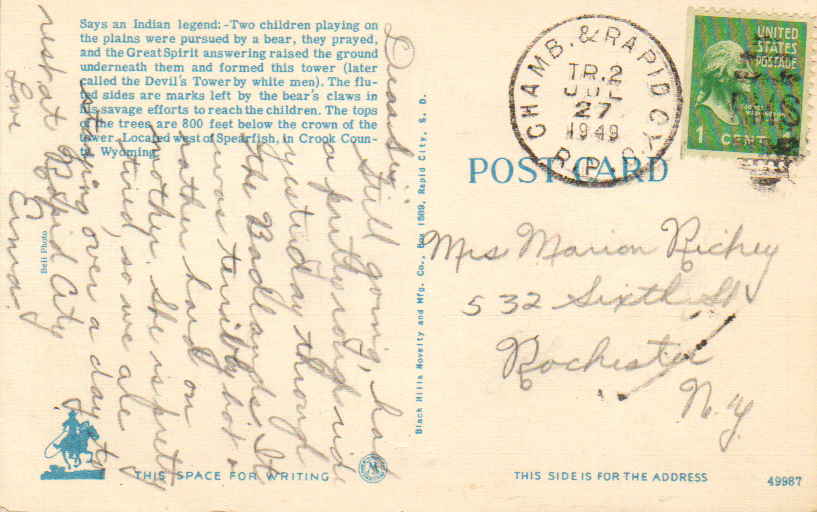 Says an Indian legend:-Two children playing on
the plains were pursued by a bear, they prayed,
and the Great Spirit answering raised the ground
underneath them and formed this tower (later
called the Devil's Tower by white men). The flu-
ted sides are marks left by the bear's claws in
his savage efforts to reach the children. The tops
of the trees are 800 feet below the crown of the
tower. Located west of Spearfish, in Crook Coun-
ty, Wyoming.
Bell Photo
Dear
Still going, had
a pretty rough ride
yesterday through
the Badlands. It
was terribly hot &
rather hard on
mother. She is pretty
tired, so we are
staying over a day to
rest at Rapid City
Love
Erma.
THIS SPACE FOR WRITING
M
Black Hills Novelty and Mfg. Co., Box 1809, Rapid City, S. D.
CHAMB. & RAPID CY.
TR. 2
JUL
27
1949
R.P.O.
UNITED
STATES
POSTAGE
1 CENT
POST CARD
Mrs Marion Richey
532 Sixth St
Rochester
N.Y.
THIS SIDE IS FOR THE ADDRESS
49987